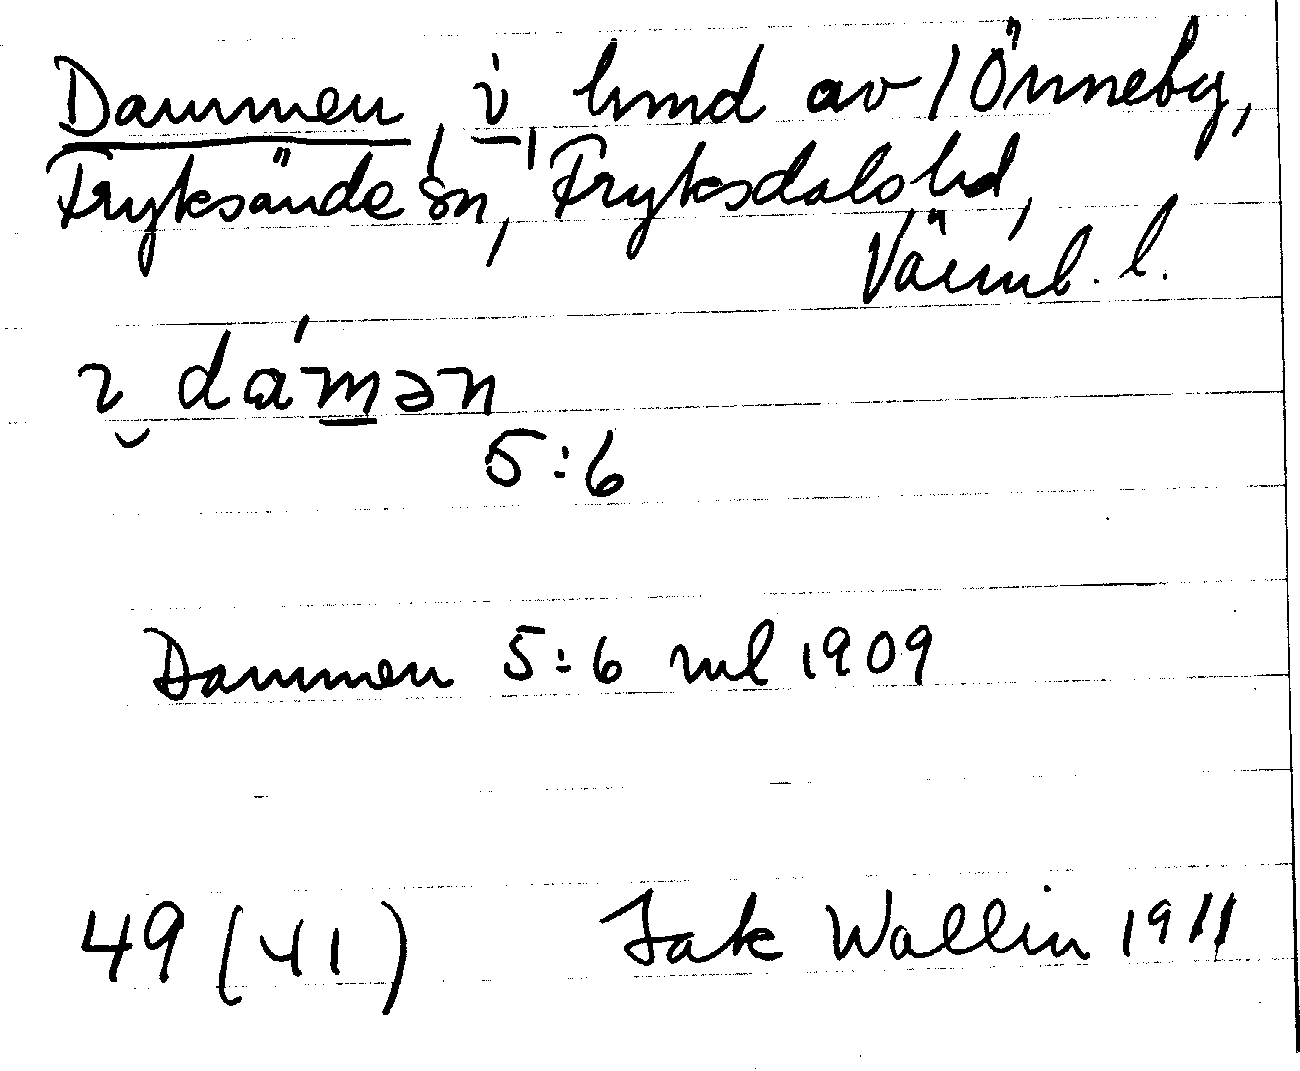 Dammen, i, hmd av 1 Önneby,
Fryksände sn, Fryksdals hd,
Värml. l.
ɩ dámən
5:6
Dammen 5:6 ml 1909
49 (41) Jak Wallin 1911